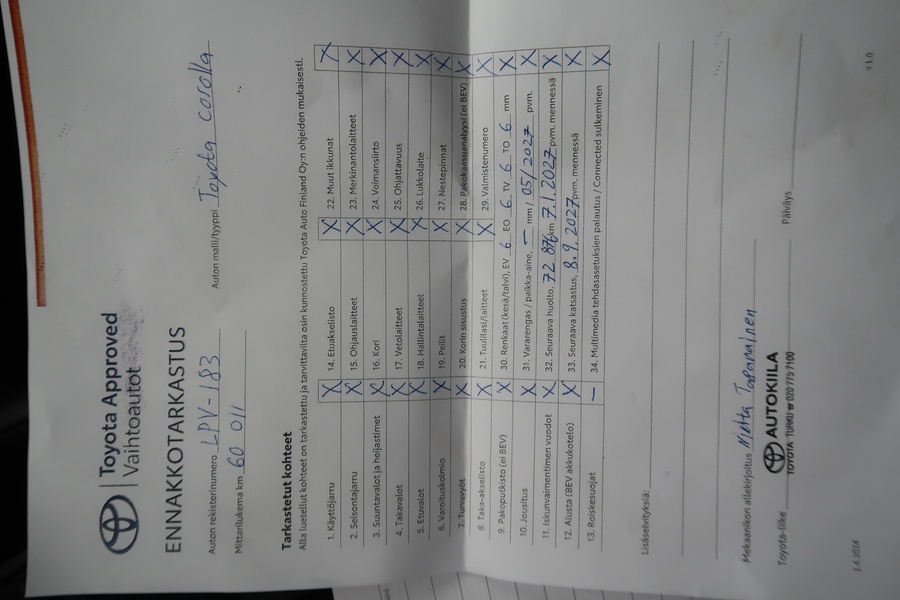 Toyota Approved
Vaihtoautot
ENNAKKOTARKASTUS
Auton rekisterinumero LPV-183 Auton malli/tyyppi Toyota Corolla
Mittarilukema km 60 011
Tarkastetut kohteet
Alla luetellut kohteet on tarkastettu ja tarvittavilta osin kunnostettu Toyota Auto Finland Oy:n ohjeiden mukaisesti.
1. Käyttöjarru X
2. Seisontajarru X
3. Suuntavalot ja heijastimet X
4. Takavalot X
5. Etuvalot X
6. Varoituskolmio X
7. Turvavyöt X
8. Taka-akselisto X
9. Pakoputkisto (ei BEV) X
10. Jousitus X
11. Iskunvaimentimen vuodot X
12. Alusta (BEV akkukotelo) X
13. Roiskesuojat –
14. Etuakselisto X
15. Ohjauslaitteet X
16. Kori X
17. Vetolaitteet X
18. Hallintalaitteet X
19. Peilit X
20. Korin sisustus X
21. Tuulilasi/laitteet X
22. Muut ikkunat X
23. Merkinantolaitteet X
24. Voimansiirto X
25. Ohjattavuus X
26. Lukkolaite X
27. Nestepinnat X
28. Pakokaasuanalyysi (ei BEV) X
29. Valmistenumero X
30. Renkaat (kesä/talvi), EV 6 EO 6 TV 6 TO 6 mm X
31. Vararengas / paikka-aine, – mm / 05/2027 pvm. X
32. Seuraava huolto, 72 876 km 7.1.2027 pvm. mennessä X
33. Seuraava katsastus, 8.9.2027 pvm. mennessä X
34. Multimedia tehdasasetuksien palautus / Connected sulkeminen X
Lisäselvityksiä:
Mekaanikon allekirjoitus
AUTOKIILA
Toyota-liike TOYOTA TURKU ☎ 020 775 7100 Päiväys
V 1.0